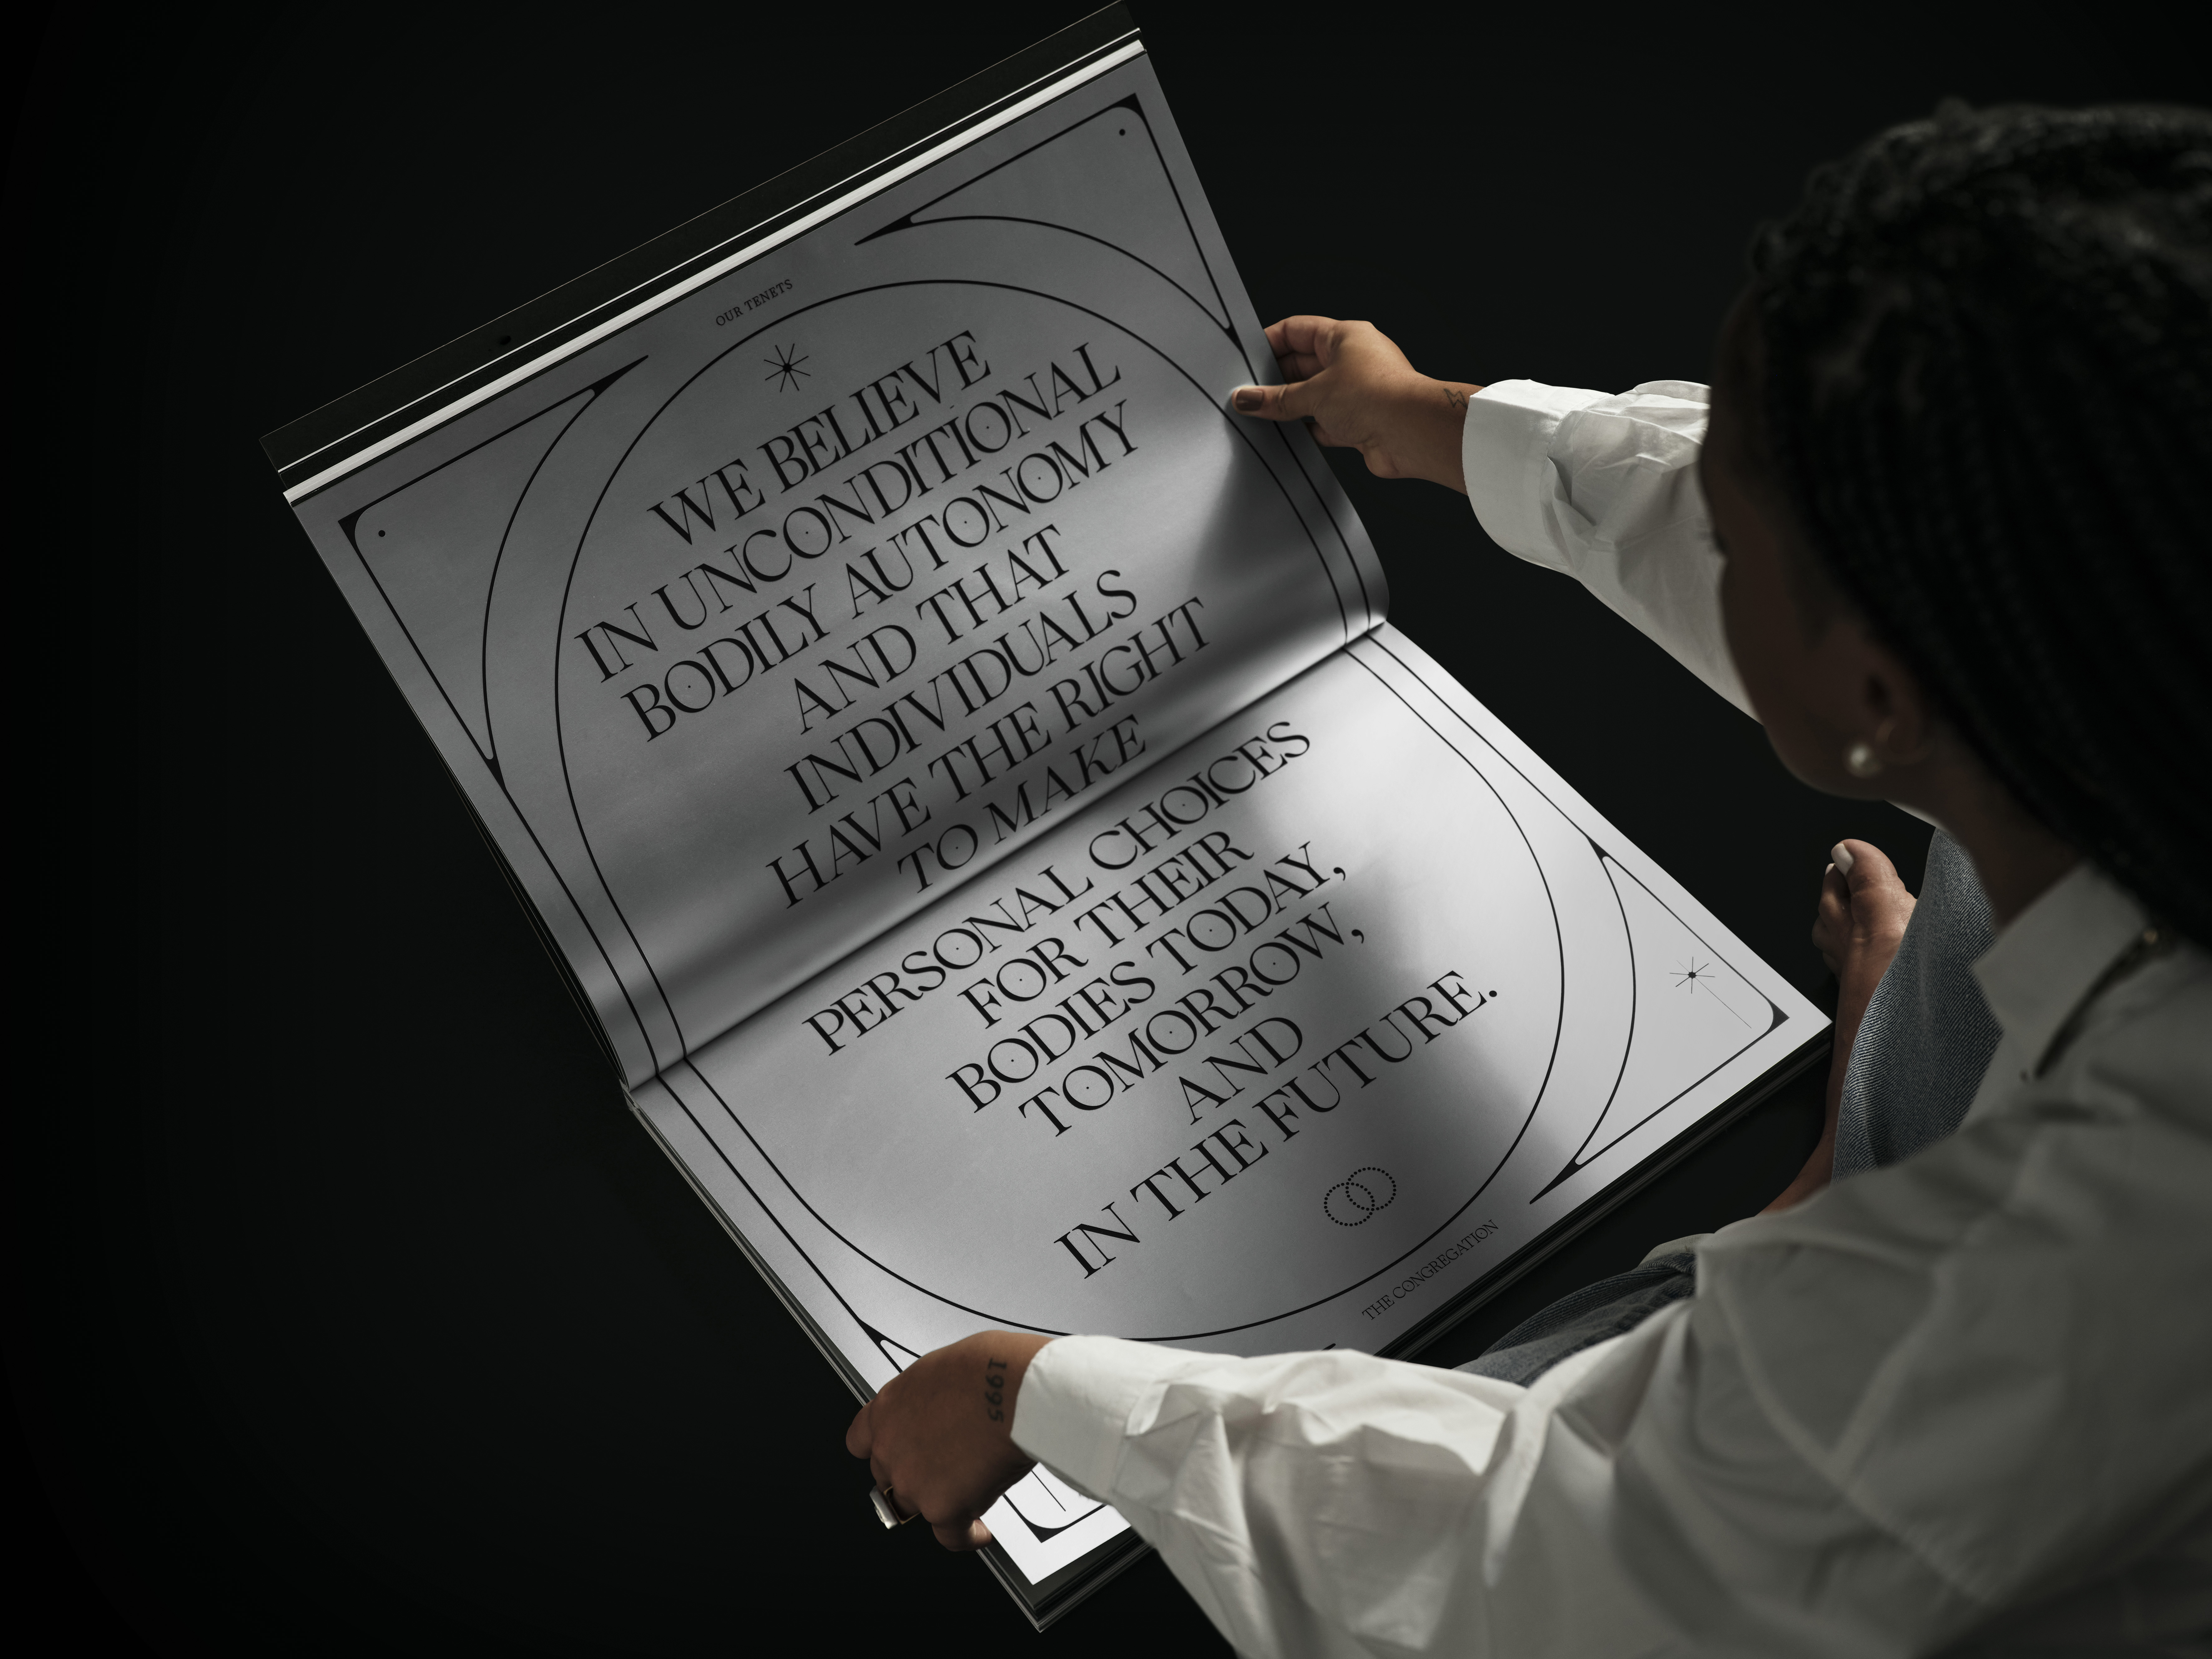 OUR TENETS
WE BELIEVE
IN UNCONDITIONAL
BODILY AUTONOMY
AND THAT
INDIVIDUALS
HAVE THE RIGHT
TO MAKE
PERSONAL CHOICES
FOR THEIR
BODIES TODAY,
TOMORROW,
AND
IN THE FUTURE.
THE CONGREGATION
1995